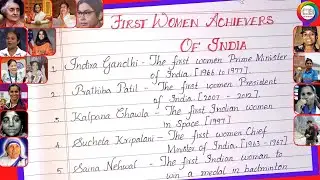 First Women Achievers
Of India
1. Indira Gandhi - The first women Prime Minister
of India. [1966 to 1977].
2. Prathiba Patil - The first women President
of India. [2007 - 2012]
3. Kalpana Chawla - The first Indian women
in Space [1997]
4. Sucheta Kripalani - The first women Chief
Minister of India. [1963 - 1967]
5. Saina Nehwal - The first Indian woman to
win a medal in badminton